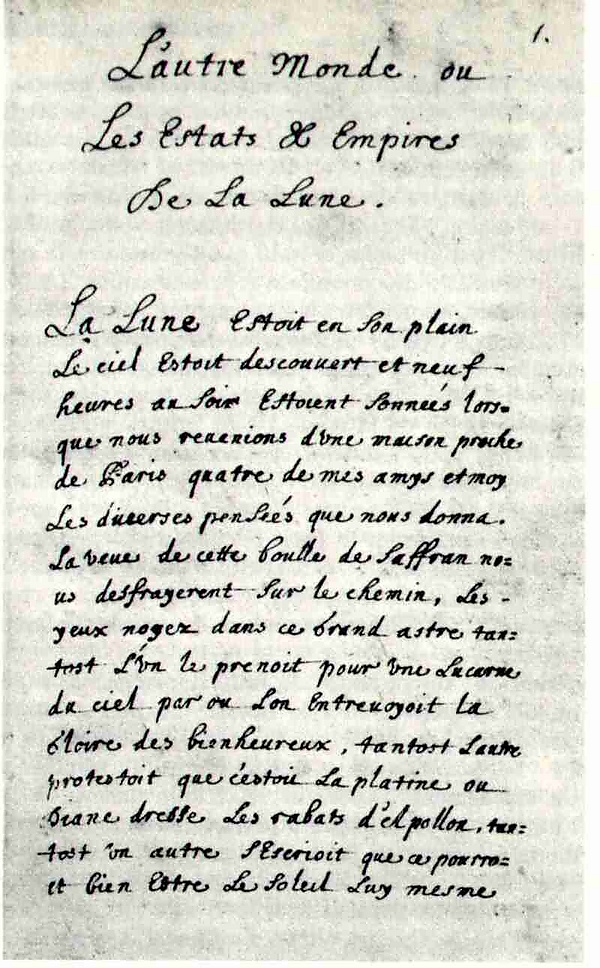 1.
L'autre Monde ou
Les Estats & Empires
De La Lune.
La Lune Estoit en son plain
Le ciel Estoit descouvert et neuf -
heures au soir Estoient sonneés lors=
que nous reuenions d'vne maison proche
de Paris quatre de mes amys et moy
Les diuerses penseés que nous donna.
La veue de cette boulle de saffran no=
us desfrayerent sur le chemin, Les -
yeux noyez dans ce Grand astre tan=
tost L'vn le prenoit pour vne Lucarne
du ciel par ou Lon Entreuoyoit la
Gloire des bienheureux, tantost Lautre
protestoit que c'estoit La platine ou
Diane dresse Les rabats d'Apollon, tan=
tost vn autre s'Escrioit que ce pourro=
it bien Estre Le Soleil Luy mesme